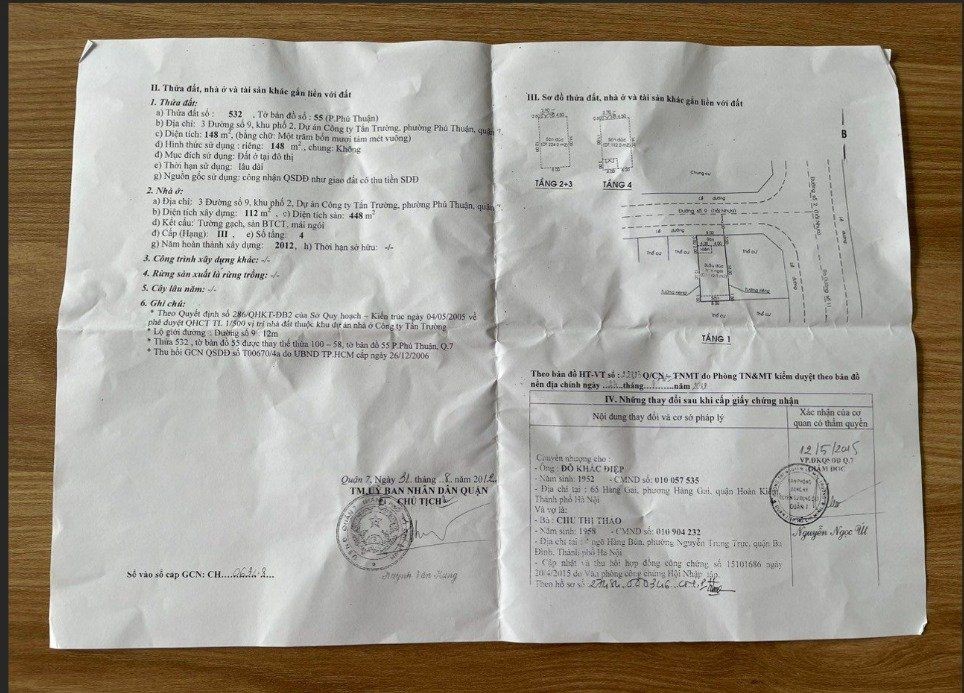 II. Thửa đất, nhà ở và tài sản khác gắn liền với đất
1. Thửa đất:
a) Thửa đất số : 532 , Tờ bản đồ số : 55 (P.Phú Thuận)
b) Địa chỉ: 3 Đường số 9, khu phố 2, Dự án Công ty Tấn Trường, phường Phú Thuận, quận 7.
c) Diện tích: 148 m², (bằng chữ: Một trăm bốn mươi tám mét vuông)
d) Hình thức sử dụng : riêng: 148 m², chung: Không
đ) Mục đích sử dụng: Đất ở tại đô thị
e) Thời hạn sử dụng: lâu dài
g) Nguồn gốc sử dụng: công nhận QSDĐ như giao đất có thu tiền SDĐ
2. Nhà ở:
a) Địa chỉ: 3 Đường số 9, khu phố 2, Dự án Công ty Tấn Trường, phường Phú Thuận, quận 7.
b) Diện tích xây dựng: 112 m² , c) Diện tích sàn: 448 m²
d) Kết cấu: Tường gạch, sàn BTCT, mái ngói
đ) Cấp (Hạng): III , e) Số tầng: 4
g) Năm hoàn thành xây dựng: 2012, h) Thời hạn sở hữu: -/-
3. Công trình xây dựng khác: -/-
4. Rừng sản xuất là rừng trồng: -/-
5. Cây lâu năm: -/-
6. Ghi chú:
* Theo Quyết định số 286/QHKT-ĐB2 của Sở Quy hoạch – Kiến trúc ngày 04/05/2005 về
phê duyệt QHCT TL 1/500 vị trí nhà đất thuộc khu dự án nhà ở Công ty Tấn Trường
* Lộ giới đường : Đường số 9 : 12m
* Thửa 532 , tờ bản đồ 55 được thay thế thửa 100 – 58, tờ bản đồ 55 P.Phú Thuận, Q.7
* Thu hồi GCN QSDĐ số T00670/4a do UBND TP.HCM cấp ngày 26/12/2006
Quận 7, Ngày 31 tháng 8 năm 2012
TM.ỦY BAN NHÂN DÂN QUẬN
CHỦ TỊCH
Huỳnh Văn Hùng
Số vào sổ cấp GCN: CH
III. Sơ đồ thửa đất, nhà ở và tài sản khác gắn liền với đất
B
TẦNG 2+3
TẦNG 4
Chung cư
Lề đường
Đường số 9
Lề đường
Thổ cư
Thổ cư
Thổ cư
Tường riêng
Tường riêng
Thổ cư
Thổ cư
TẦNG 1
Theo bản đồ HT-VT số : Q/CN – TNMT do Phòng TN&MT kiểm duyệt theo bản đồ
nền địa chính ngày tháng năm
IV. Những thay đổi sau khi cấp giấy chứng nhận
Nội dung thay đổi và cơ sở pháp lý
Xác nhận của cơ
quan có thẩm quyền
12/5/2015
VP.ĐKQSDĐ Q.7
GIÁM ĐỐC
Nguyễn Ngọc
Chuyển nhượng cho :
- Ông : ĐỖ KHẮC ĐIỆP
- Năm sinh: 1952 - CMND số: 010 057 535
- Địa chỉ tại : 65 Hàng Gai, phường Hàng Gai, quận Hoàn
Thành phố Hà Nội
Và vợ là:
- Bà : CHU THỊ THAO
- Năm sinh: 1958 - CMND số: 010 904 232
- Địa chỉ tại : ngõ Hàng Bún, phường Nguyễn Trung Trực, quận Ba
Đình, Thành phố Hà Nội
- Cập nhật và thu hồi hợp đồng công chứng số 15101686 ngày
20/4/2015 do Văn phòng công chứng Hội Nhập lập.
Theo hồ sơ số